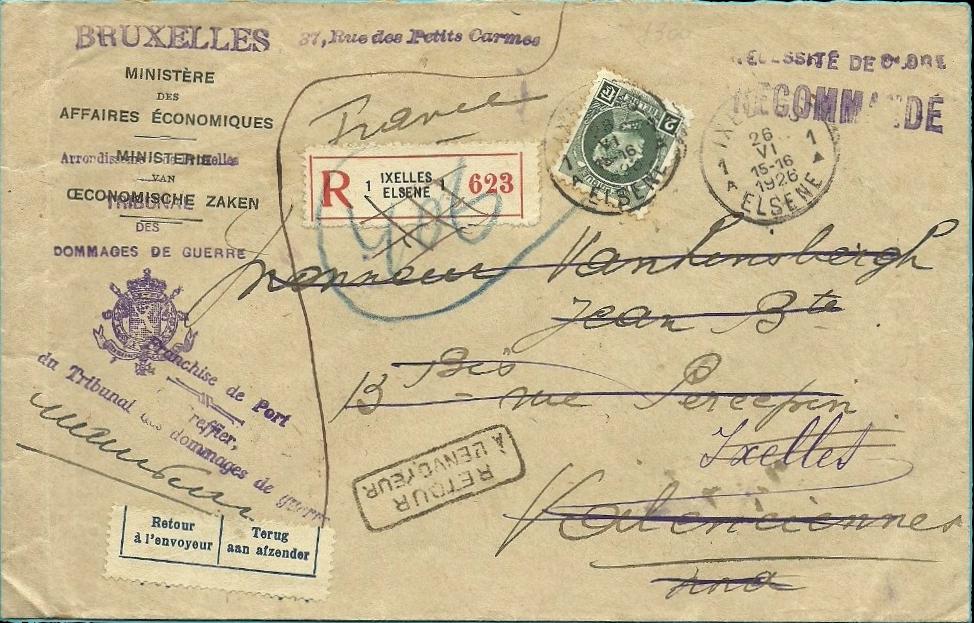 BRUXELLES
37, Rue des Petits Carmes
MINISTÈRE
DES
AFFAIRES ÉCONOMIQUES
Arrondissement de Bruxelles
MINISTERIE
VAN
ŒCONOMISCHE ZAKEN
TRIBUNAL
DES
DOMMAGES DE GUERRE
Franchise de Port
Greffier,
du Tribunal des dommages de guerre
Retour
à l'envoyeur
Terug
aan afzender
France
R
1 IXELLES 1
ELSENE
623
406
2
1 ELSENE
NÉCESSITÉ DE
RECOMMANDÉ
IXELLES
1 26 1
VI
15-16
1926
A ELSENE
Monsieur
Jean Bte
13 Bis rue Percepin
Ixelles
Valenciennes
RETOUR
A L'ENVOYEUR